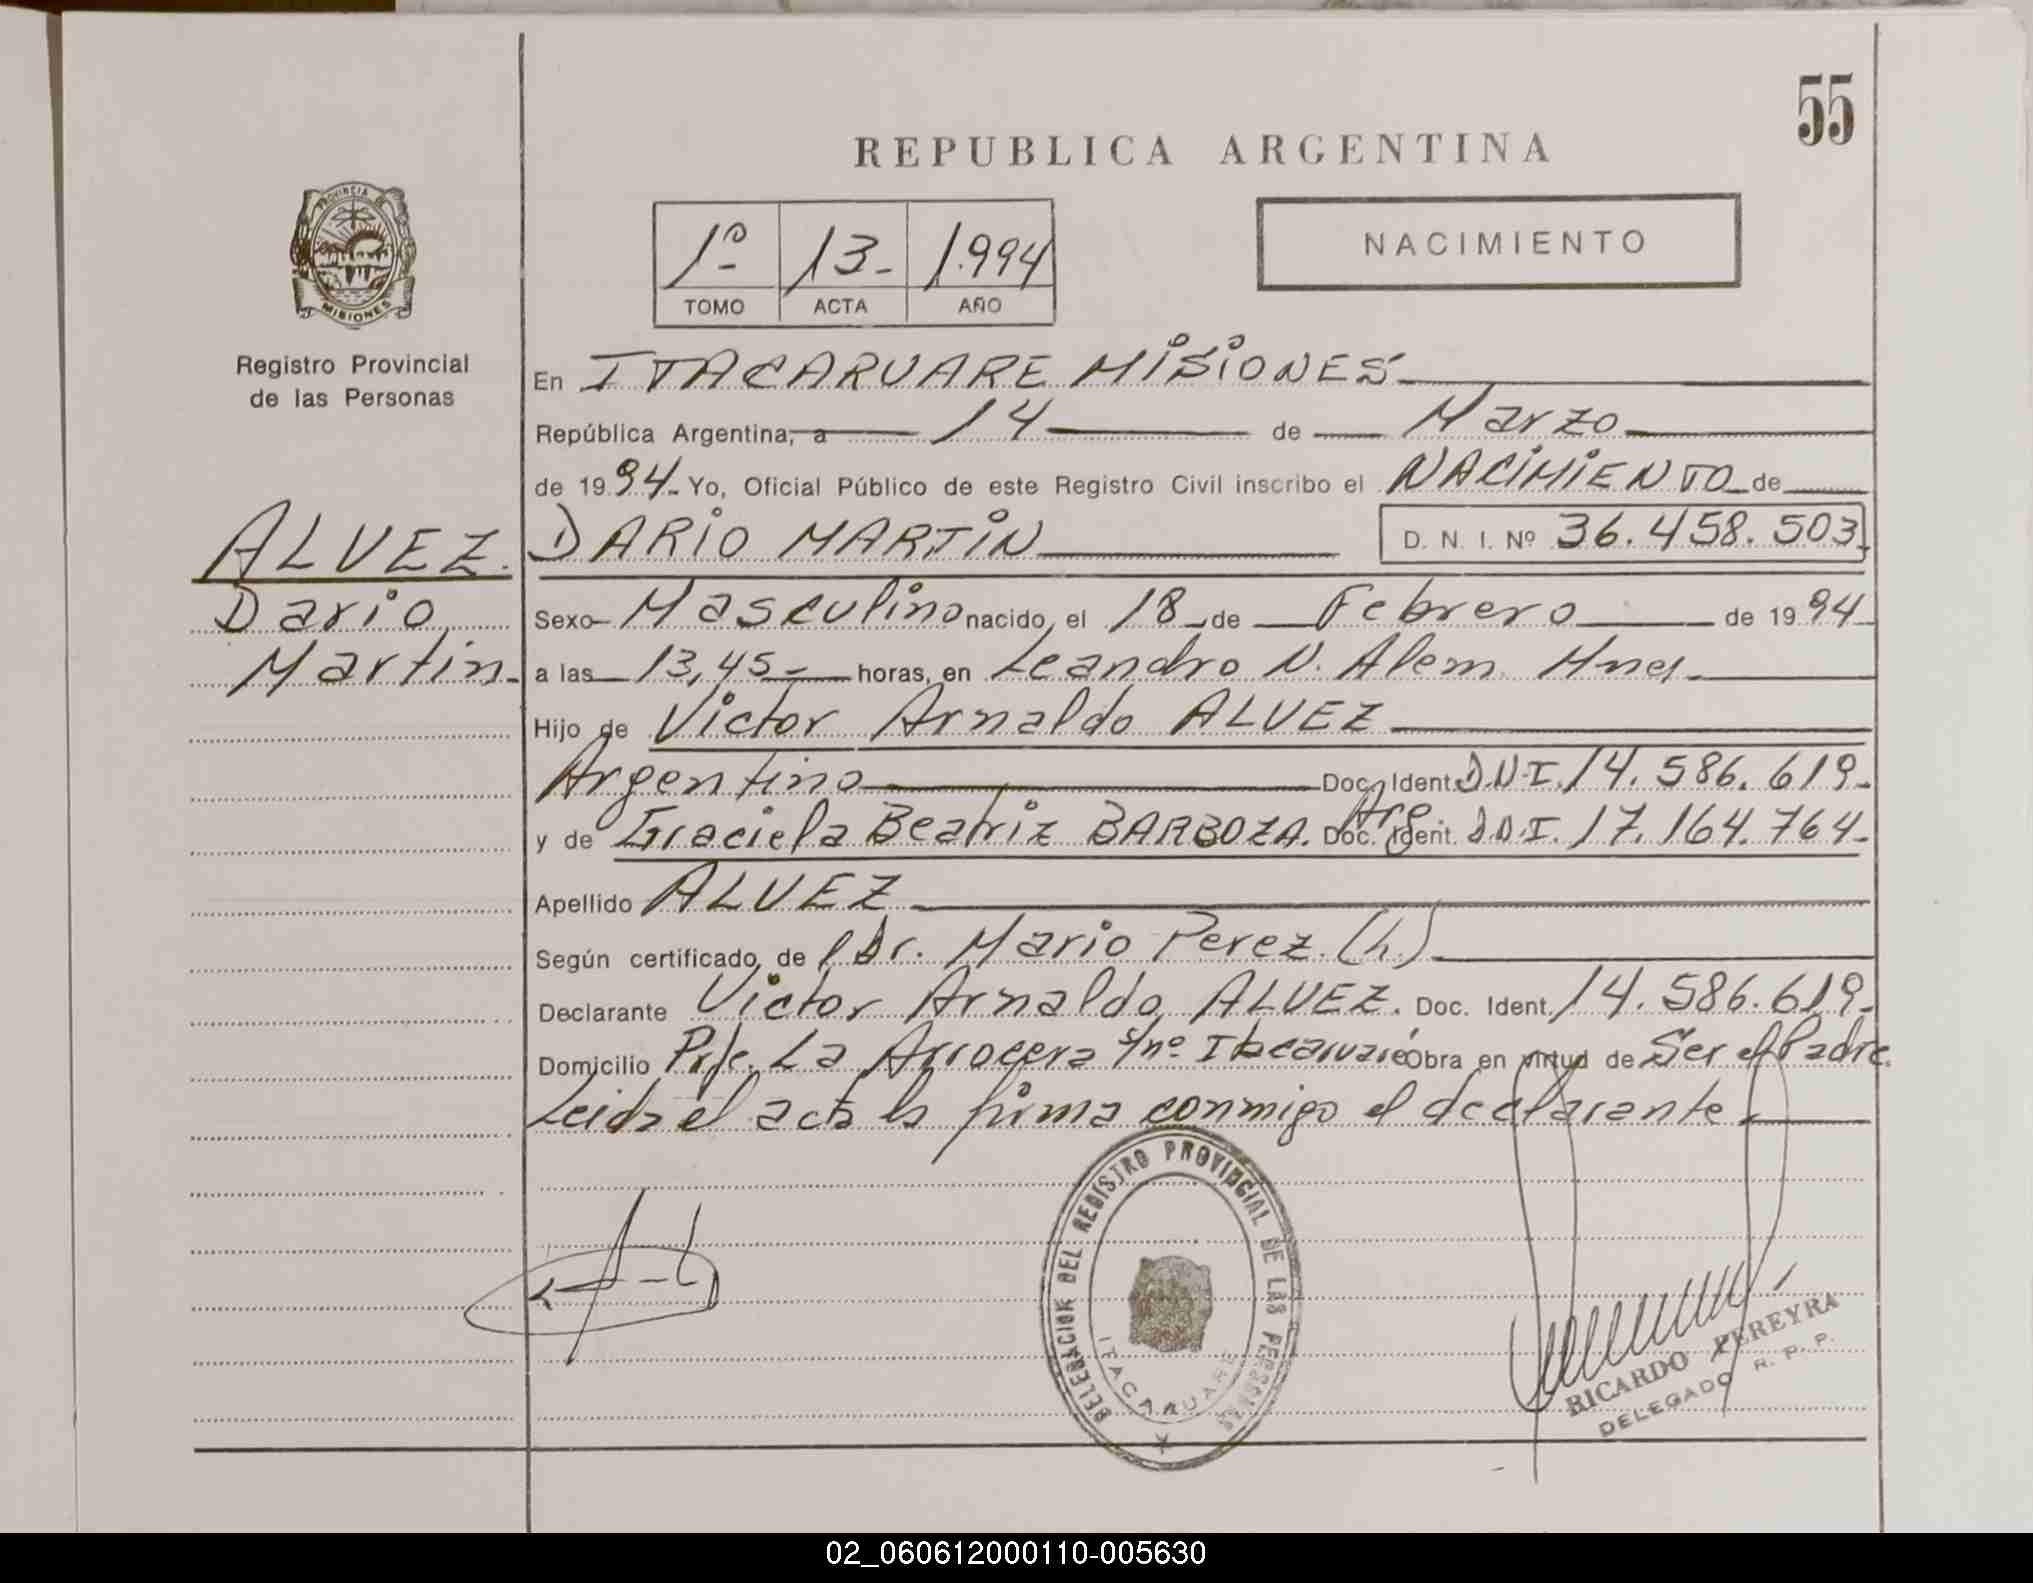 55
REPUBLICA ARGENTINA
PROVINCIA DE
MISIONES
Registro Provincial
de las Personas
1º- 13- 1.994
TOMO ACTA AÑO
NACIMIENTO
En ITACARUARE MISIONES.
República Argentina, a 14 de Marzo
de 1994- Yo, Oficial Público de este Registro Civil inscribo el NACIMIENTO de
ALVEZ.
Dario
Martin.
DARIO MARTIN D. N. I. Nº 36.458.503
Sexo Masculino nacido el 18 de Febrero de 1994
a las 13,45 horas, en Leandro N. Alem
Hijo de Victor Arnaldo ALVEZ
Argentino Doc. Ident. D.N.I. 14.586.619-
y de Graciela Beatriz BARBOZA. Arg. Doc. Ident. D.N.I. 17.164.764-
Apellido ALVEZ
Según certificado de l Dr. Mario Perez (h)
Declarante Victor Arnaldo ALVEZ. Doc. Ident. 14.586.619-
Domicilio La Arrocera s/nº Itacaruaré Obra en virtud de Ser el Padre.
Leida el acta la firma conmigo el declarante
DELEGACION DEL REGISTRO PROVINCIAL DE LAS PERSONAS
ITACARUARE
RICARDO PEREYRA
DELEGADO R. P. P.
02_060612000110-005630